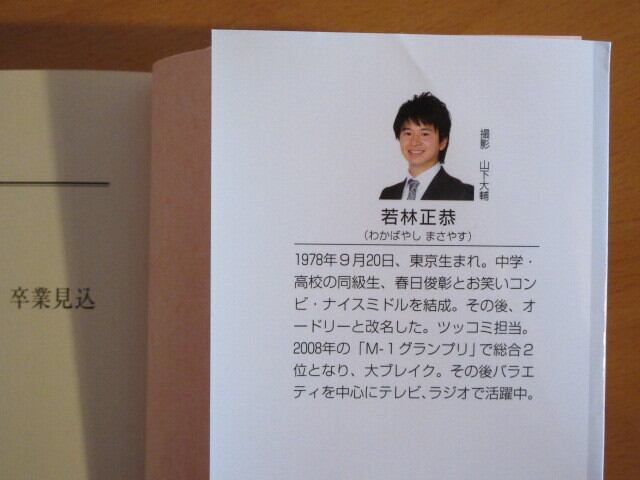 撮影 山下大輔
若林正恭
(わかばやし まさやす)
1978年9月20日、東京生まれ。中学・
高校の同級生、春日俊彰とお笑いコン
ビ・ナイスミドルを結成。その後、オ
ードリーと改名した。ツッコミ担当。
2008年の「M-1グランプリ」で総合2
位となり、大ブレイク。その後バラエ
ティを中心にテレビ、ラジオで活躍中。
卒業見込